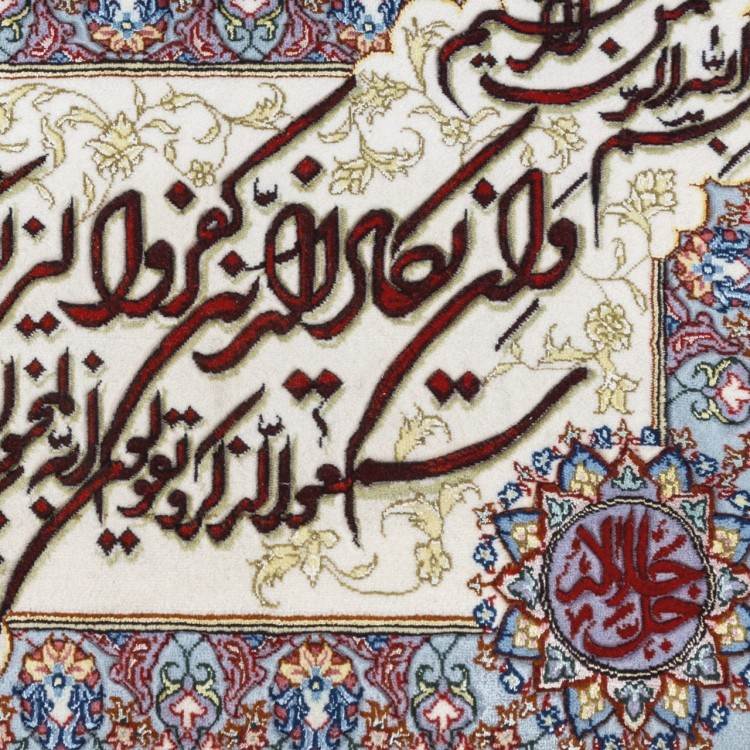 بسم الله الرحمن الرحیم
وَان یکاد الذین کفروا لیز
سمعوا الذکر و یقولون انه لمجنون
جل جلاله